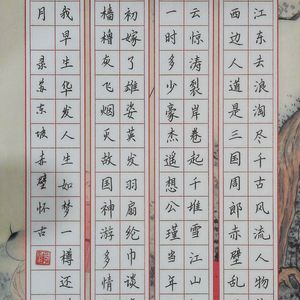 江东去浪淘尽千古风流人物
西边人道是三国周郎赤壁乱
云惊涛裂岸卷起千堆雪江山
一时多少豪杰遥想公瑾当年
初嫁了雄姿英发羽扇纶巾谈
樯橹灰飞烟灭故国神游多情
我早生华发人生如梦一樽还
月 录苏东坡赤壁怀古